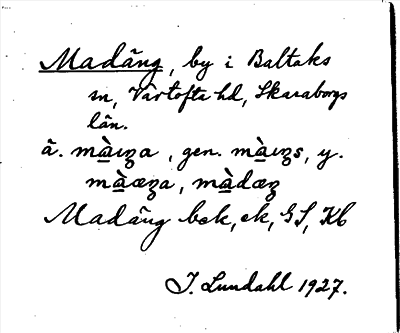 Madäng, by i Baltaks
sn, Vartofta hd, Skaraborgs
län.
ä. màıŋa, gen. màıŋs, y.
màæŋa, màdæŋ
Madäng bek, ek, GS, Kb
I. Lundahl 1927.